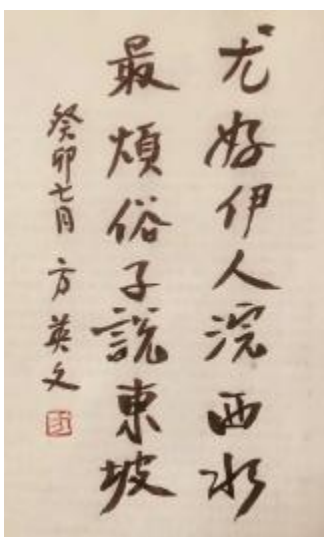 尤好伊人浣西水
最煩俗子說東坡
癸卯七月 方英文